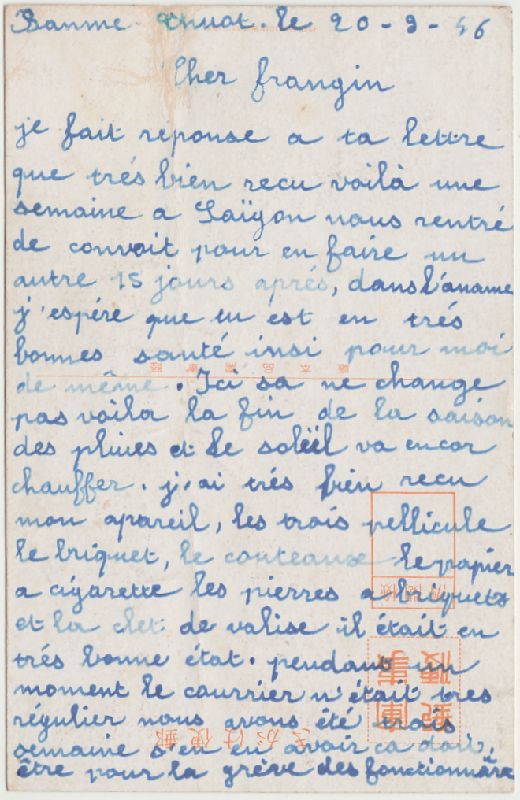 Banme-Thuot. le 20-9-46
Cher frangin
je fait réponse a ta lettre
que trés bien recu voilà une
semaine a Saïgon nous rentré
de convoit pour en faire un
autre 15 jours aprés, dans l'aname
j'espére que tu est en trés
bonnes santé insi pour moi
de même. Ici sa ne change
pas voila la fin de la saison
des pluies et le soleïl va encor
chauffer. j,ai trés bien recu
mon apareil, les trois pellicule
le briquet, le couteaux le papier
a cigarette les pierres a briquets
et la clet de valise il était en
trés bonne état. pendant un
moment le courrier n'était tres
régulier nous avons été trois
semaine s'en en avoir ca doit,
être pour la grève des fonctionnaire
軍事郵便
郵便はがき
検閲